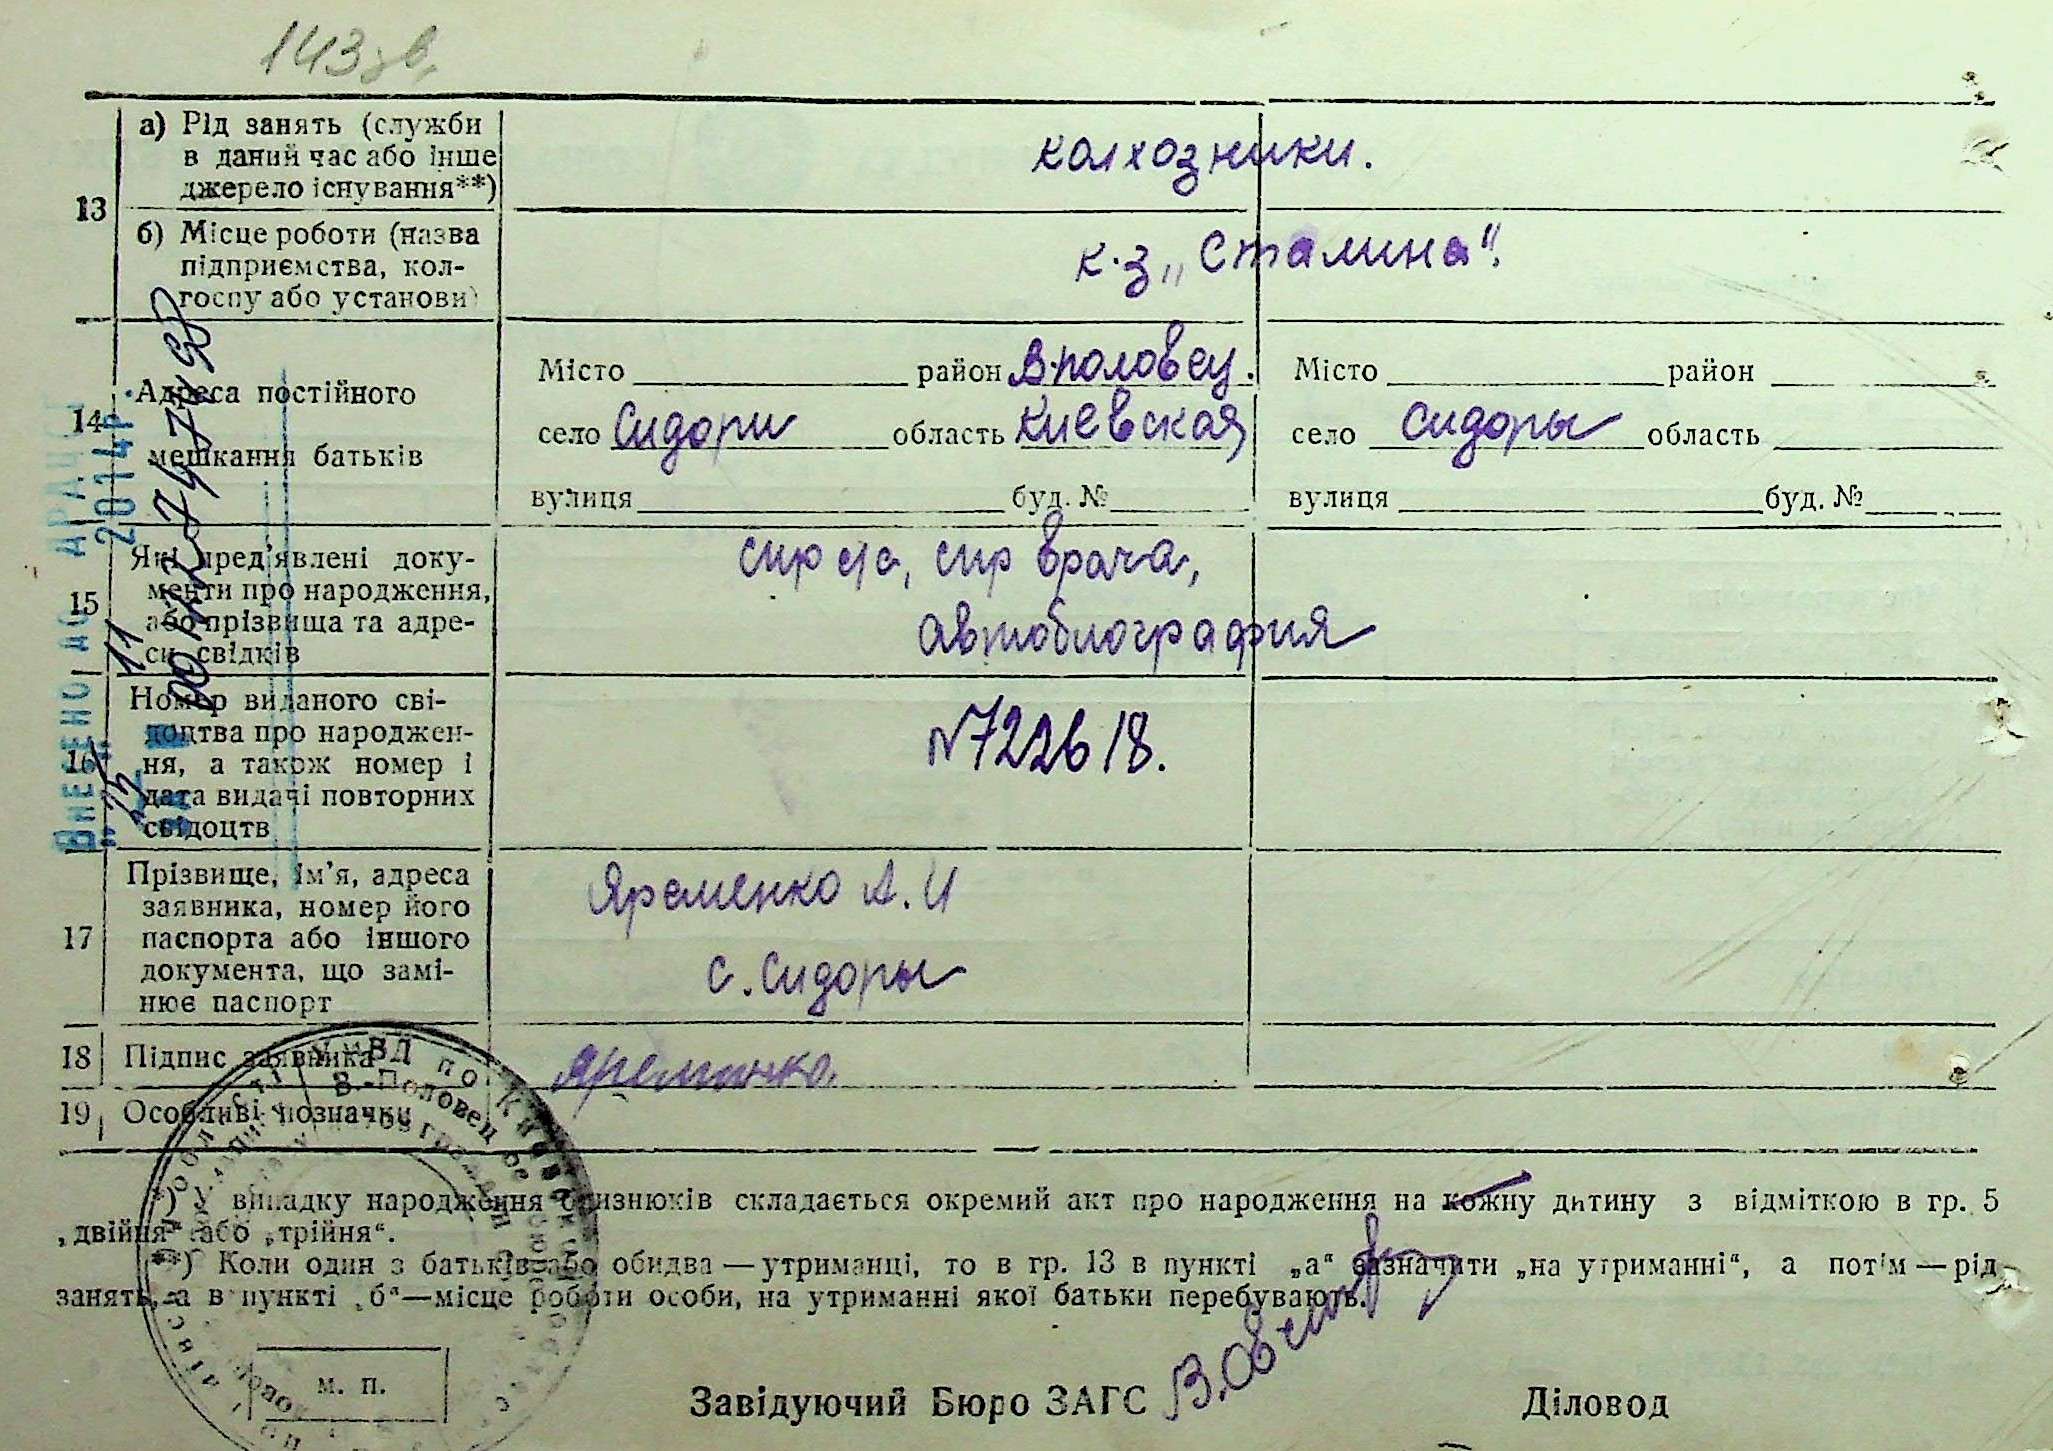 143 зв.
а) Рід занять (служби
в даний час або інше
джерело існування**)
колхозники.
13
б) Місце роботи (назва
підприємства, кол-
госпу або установи)
к-з „Сталина".
14
Адреса постійного
мешкання батьків
Місто район В-половец. Місто район
село Сидори область Киевская село Сидоры область
вулиця буд. № вулиця буд. №
15
Які пред'явлені доку-
менти про народження,
або прізвища та адре-
си свідків
спр с/с, спр врача,
автобиография
16
Номер виданого сві-
доцтва про народжен-
ня, а також номер і
дата видачі повторних
свідоцтв
№722618.
17
Прізвище, ім'я, адреса
заявника, номер його
паспорта або іншого
документа, що замі-
нює паспорт
Яременко А. И
с. Сидоры
18 Підпис заявника
Яременко
19 Особливі позначки
*) У випадку народження близнюків складається окремий акт про народження на кожну дитину з відміткою в гр. 5
„двійня" або „трійня".
**) Коли один з батьків або обидва — утриманці, то в гр. 13 в пункті „а" зазначити „на утриманні", а потім — рід
занять, а в пункті „б"—місце роботи особи, на утриманні якої батьки перебувають.
м. п.
Завідуючий Бюро ЗАГС Діловод
ВНЕСЕНО ДО ДРАЦСГ
„23" 11 2014р.
УМВД по Киевской
В.-Половец